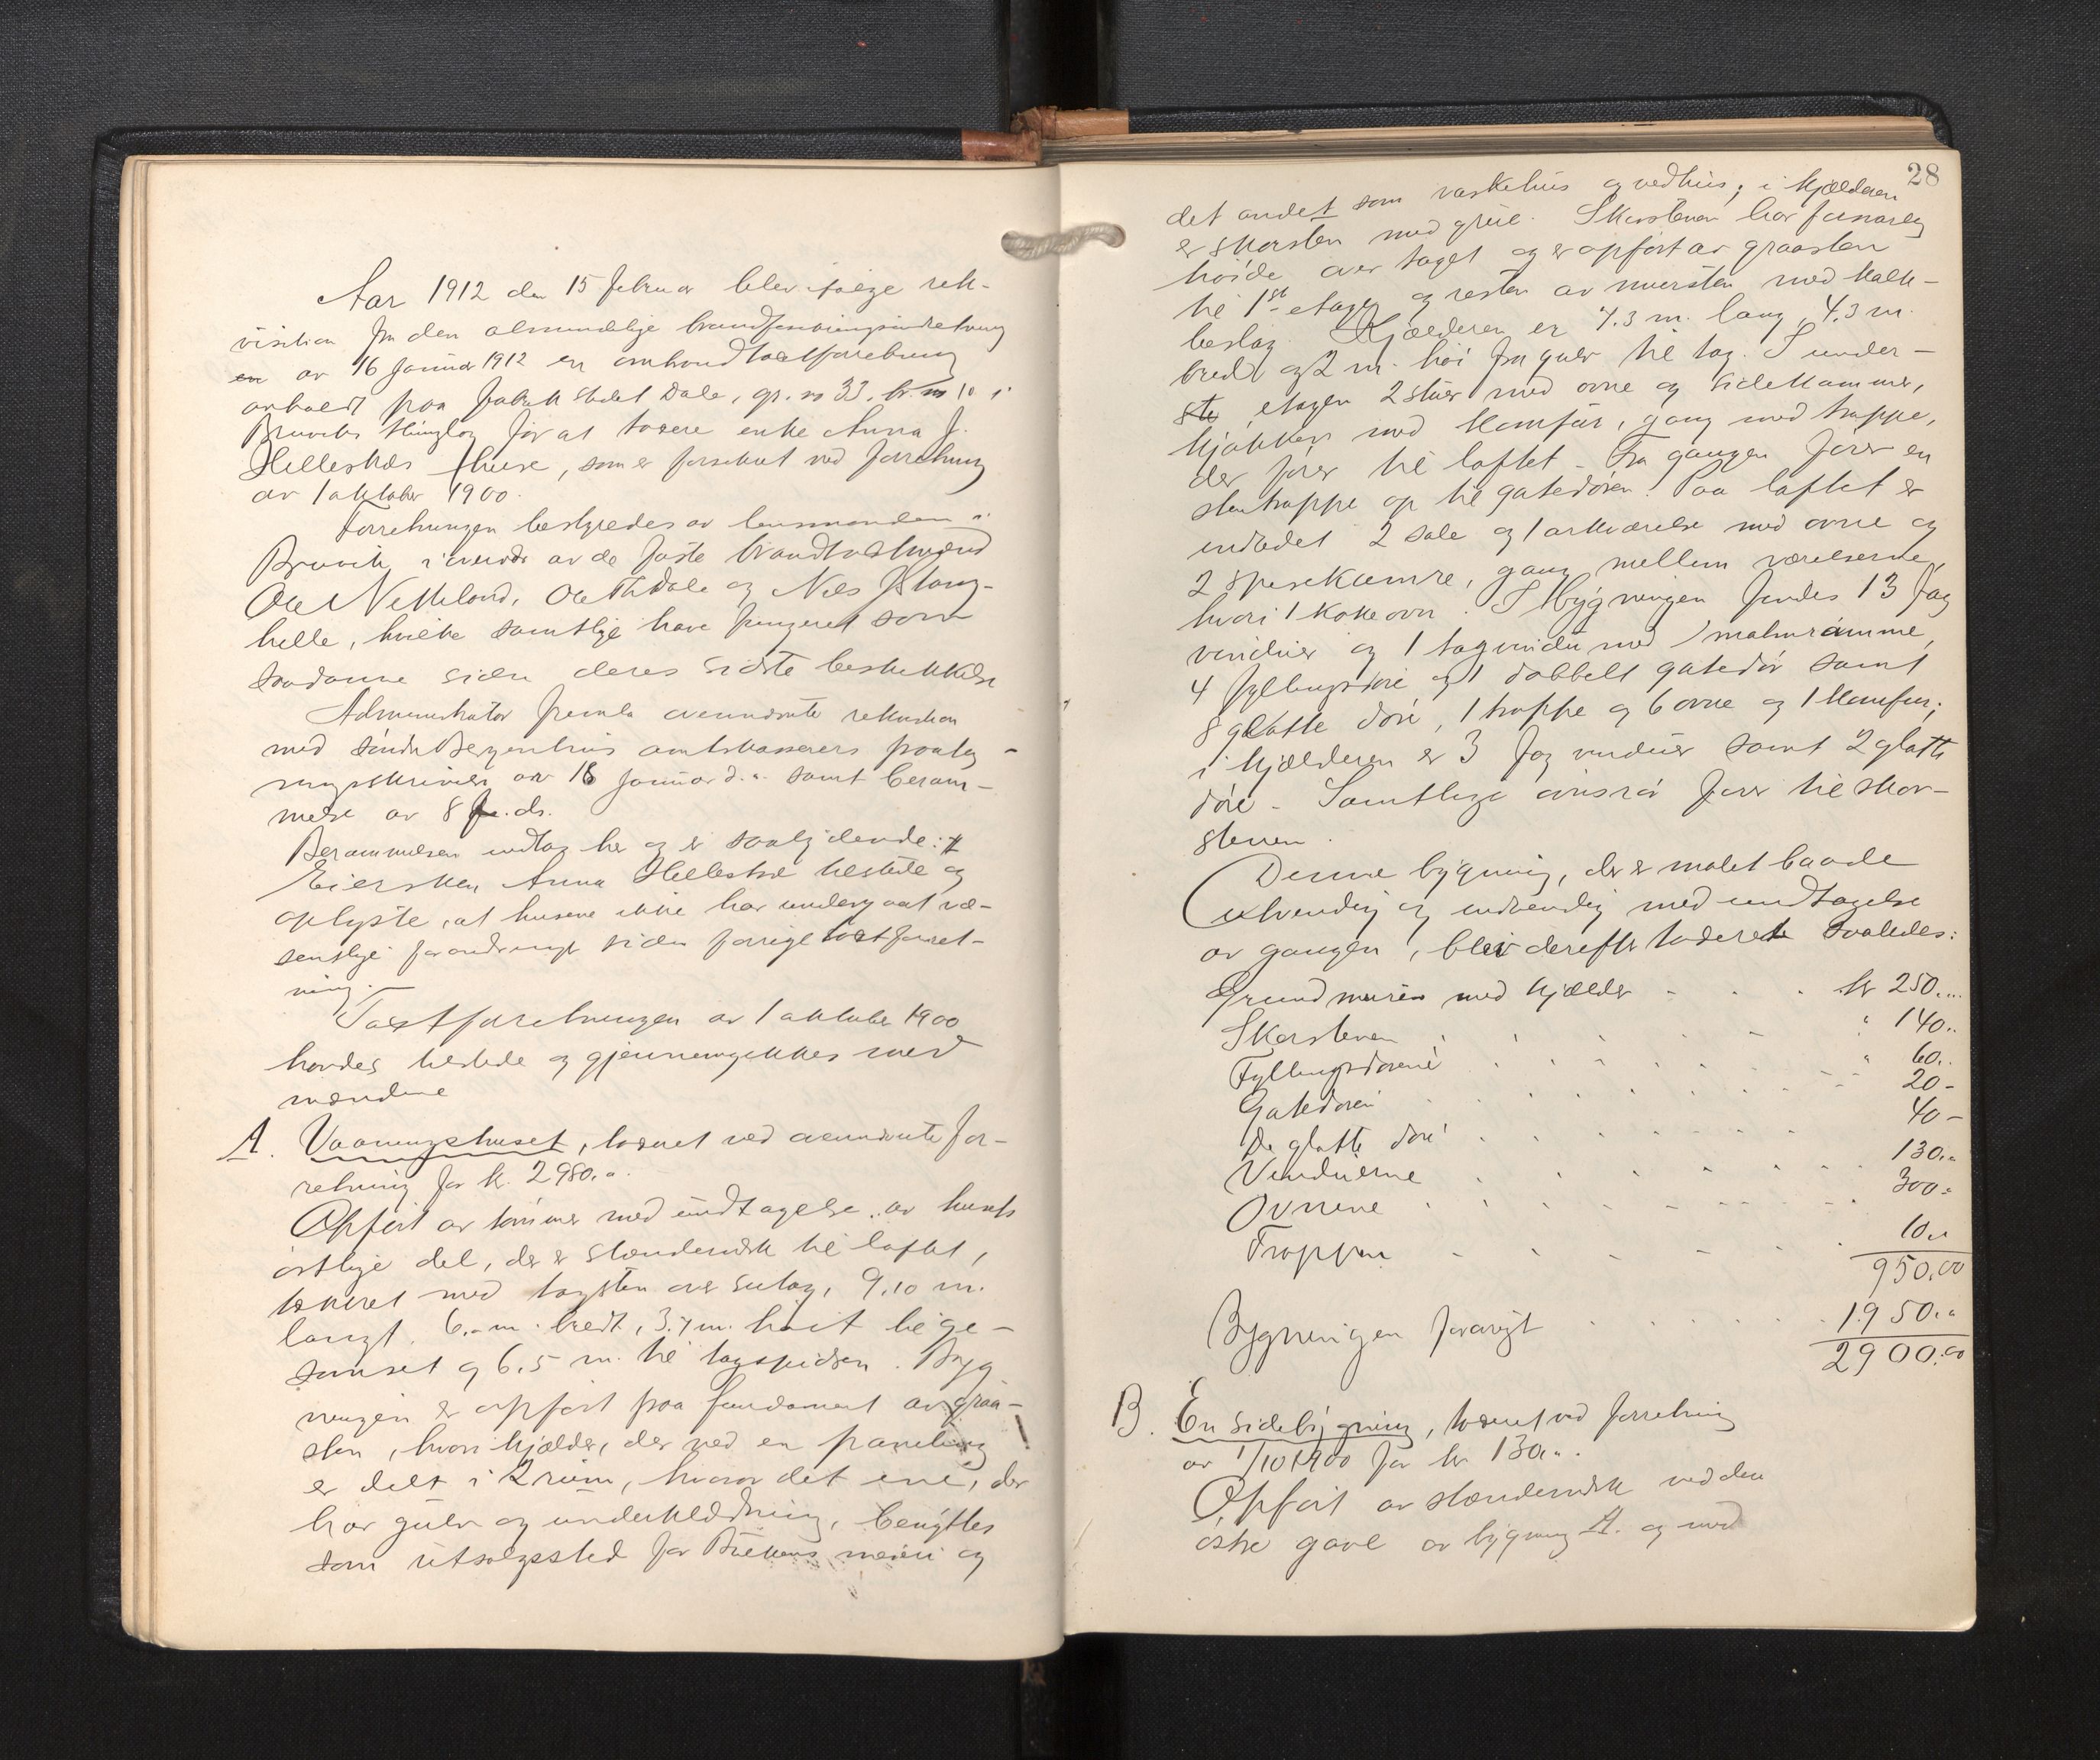 Aar 1912 den 15 februar blev ifølge rek-
visition fra den almindelige brandforsikringsindretning
av 16 januar 1912 en ombrandtakstforretning
avholdt paa Dale, gr. no 33, br. no 10 i
Bruviks tinglag for at taksere enke Anna J.
Hellesnes huse, som er forsikret ved forretning
av 1 oktober 1900.
Forretningen bestyredes av lensmanden i
Bruvik i overvær av de faste brandtakstmænd
Ole Netteland, Ole Th Dale og Nils J Stang-
helle, hvilke samtlige have fungeret som
saadanne siden deres sidste beskikkelse
Administrator fremla ovennævnte rekvisition
med Søndre Bergenhus amtskasserers paateg-
ningsskrivelse av 18 januar d.a. samt beram-
melse av 8 ds.
Berammelsen indtas her og er saalydende: #
Eiersken Anna Hellesnes tilstede og
oplyste, at husene ikke har undergaat væ-
sentlige forandringer siden forrige takstforret-
ning. —
Takstforretningen av 1 oktober 1900
havdes tilstede og gjennemgikkes med
mændene
A. Vaaningshuset, takseret ved ovennævnte for-
retning for kr. 2980.00.
Opført av tømmer med undtagelse av husets
østlige del, der er stenderværk til loftet,
tækket med tagsten over sutag, 9.10 m.
langt. 6.- m. bredt, 3.7 m. høit til ge-
simset og 6.5 m. til tagspidsen. Byg
ningen er opført paa fundament av graa-
sten, hvori kjælder, der ved en paneling
er delt i 2 rum, hvorav det ene, der
har gulv og underklædning, benyttes
som utsalgssted for meieri og
28
det andet som vaskehus og vedhus; i kjælderen
er skorsten med grue. Skorstenen har forsvarlig
høide over taget og er opført av graasten
til 1st etage og resten av mursten med kalk-
beslag. Kjælderen er 7.3 m. lang, 4.3 m.
bred og 2 m. høi fra gulv til tag. I under-
ste etagen 2 stuer med ovne og sidekammer,
kjøkken med komfur, gang med trappe,
der fører til loftet - Fra gangen fører en
stentrappe op til gatedøren. Paa loftet er
indredet 2 sale og 1 arkværelse med ovne og
2 spisekamre, gang mellem værelserne,
hvori 1 kokeovn. I bygningen findes 13 fag
vinduer og 1 tagvindu med malmramme,
4 fyllingsdøre og 1 dobbelt gatedør samt
8 glatte døre, 1 trappe og 6 ovne og 1 komfur;
i kjælderen er 3 fag vinduer samt 2 glatte
døre - Samtlige ovnsrør fører til skor-
stenen.
Denne bygning, der er malet baade
utvendig og indvendig med undtagelse
av gangen, blev derefter takseret saaledes:
Grundmuren med kjælder - . . kr 250...
Skorstenen . . . . - " 140..
Fyllingsdørene . . . . " 60..
Gatedøren . . . . . - 20-
De glatte døre . . . - - 40-
Vinduerne . . . . . 130..
Ovnene . . . . - - 300..
Trappen - - - - . 10..
950.00
Bygningen forøvrigt . . . . 1950..
2900.00
B. En sidebygning, takseret ved forretning
av 1/10 1900 for kr 130...
Opført av stenderværk ved den
østre gavl av bygning A. og med